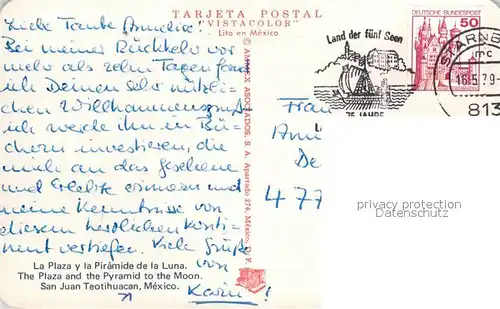 TARJETA POSTAL
"VISTACOLOR"
Lito en México
Liebe Taube Annelise!
Bei meiner Rückkehr vor
mehr als zehn Tagen fand
ich Deinen sehr nützli-
chen
ich werde ihn in Bü-
chern investieren, die
mich an das gesehene
und Erlebte erinnern und
meine Kenntnisse von
diesem herrlichen Konti-
nent vertiefen. Viele Grüße
von
Karin!
La Plaza y la Pirámide de la Luna.
The Plaza and the Pyramid to the Moon.
San Juan Teotihuacan, México.
© AMMEX ASOCIADOS, S. A. Apartado 274, México, D. F.
Land der fünf Seen
75 JAHRE
DEUTSCHE BUNDESPOST
50
STARNB
mc
16.5.79
813
Frau
De
477
privacy protection
Datenschutz